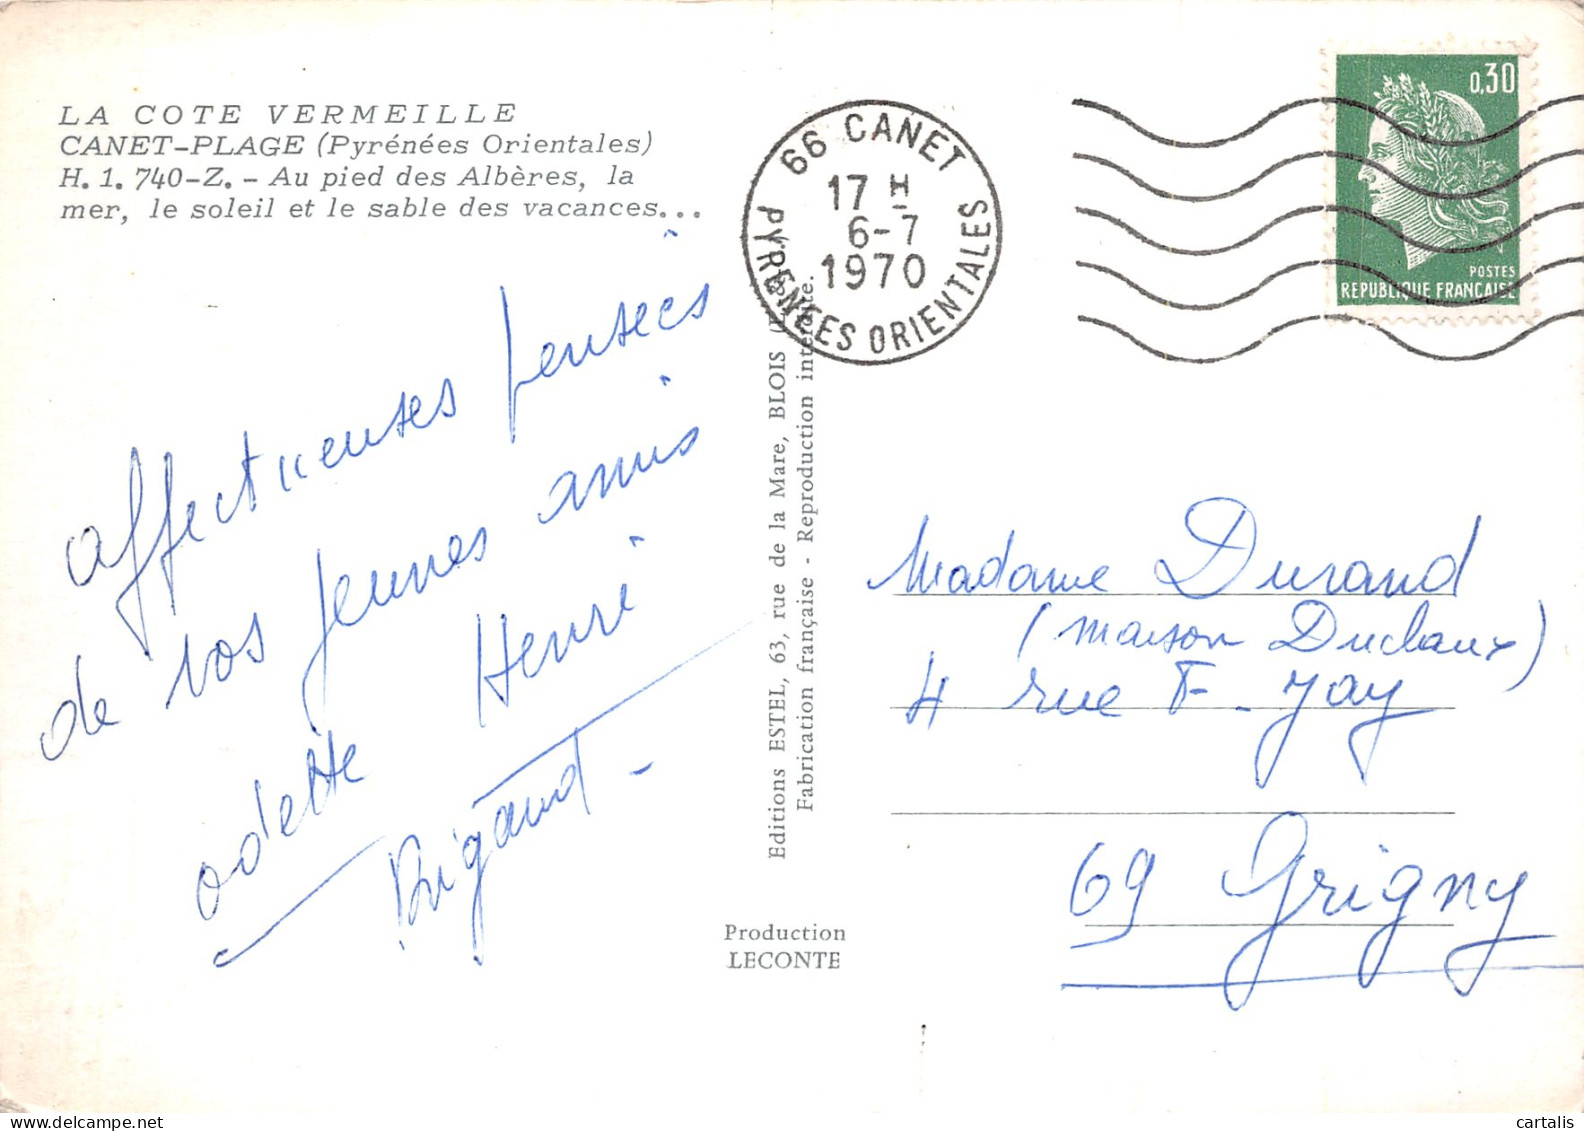 LA COTE VERMEILLE
CANET-PLAGE (Pyrénées Orientales)
H. 1. 740-Z. - Au pied des Albères, la
mer, le soleil et le sable des vacances...
affectueuses pensées
de vos jeunes amis
odette Henri
Rigaud -
66 CANET
17 H
6-7
1970
PYRENEES ORIENTALES
0,30
POSTES
REPUBLIQUE FRANCAISE
Editions ESTEL, 63, rue de la Mare, BLOIS
Fabrication française - Reproduction interdite.
Production
LECONTE
Madame Durand
(maison Duclaux)
4 rue F. Jay
69 Grigny
cartalis